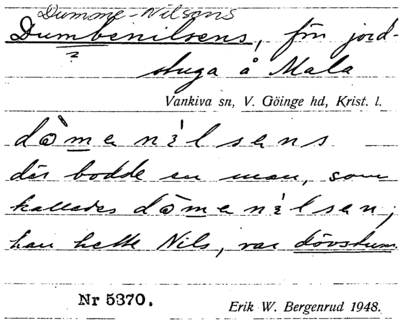 Dumme-Nilsens
Dumbenilsens, för jord-
stuga å Mala
Vankiva sn, V. Göinge hd, Krist. l.
där bodde en man, som
kallades
han hette Nils, var dövstum
Nr 5370.
Erik W. Bergenrud 1948.